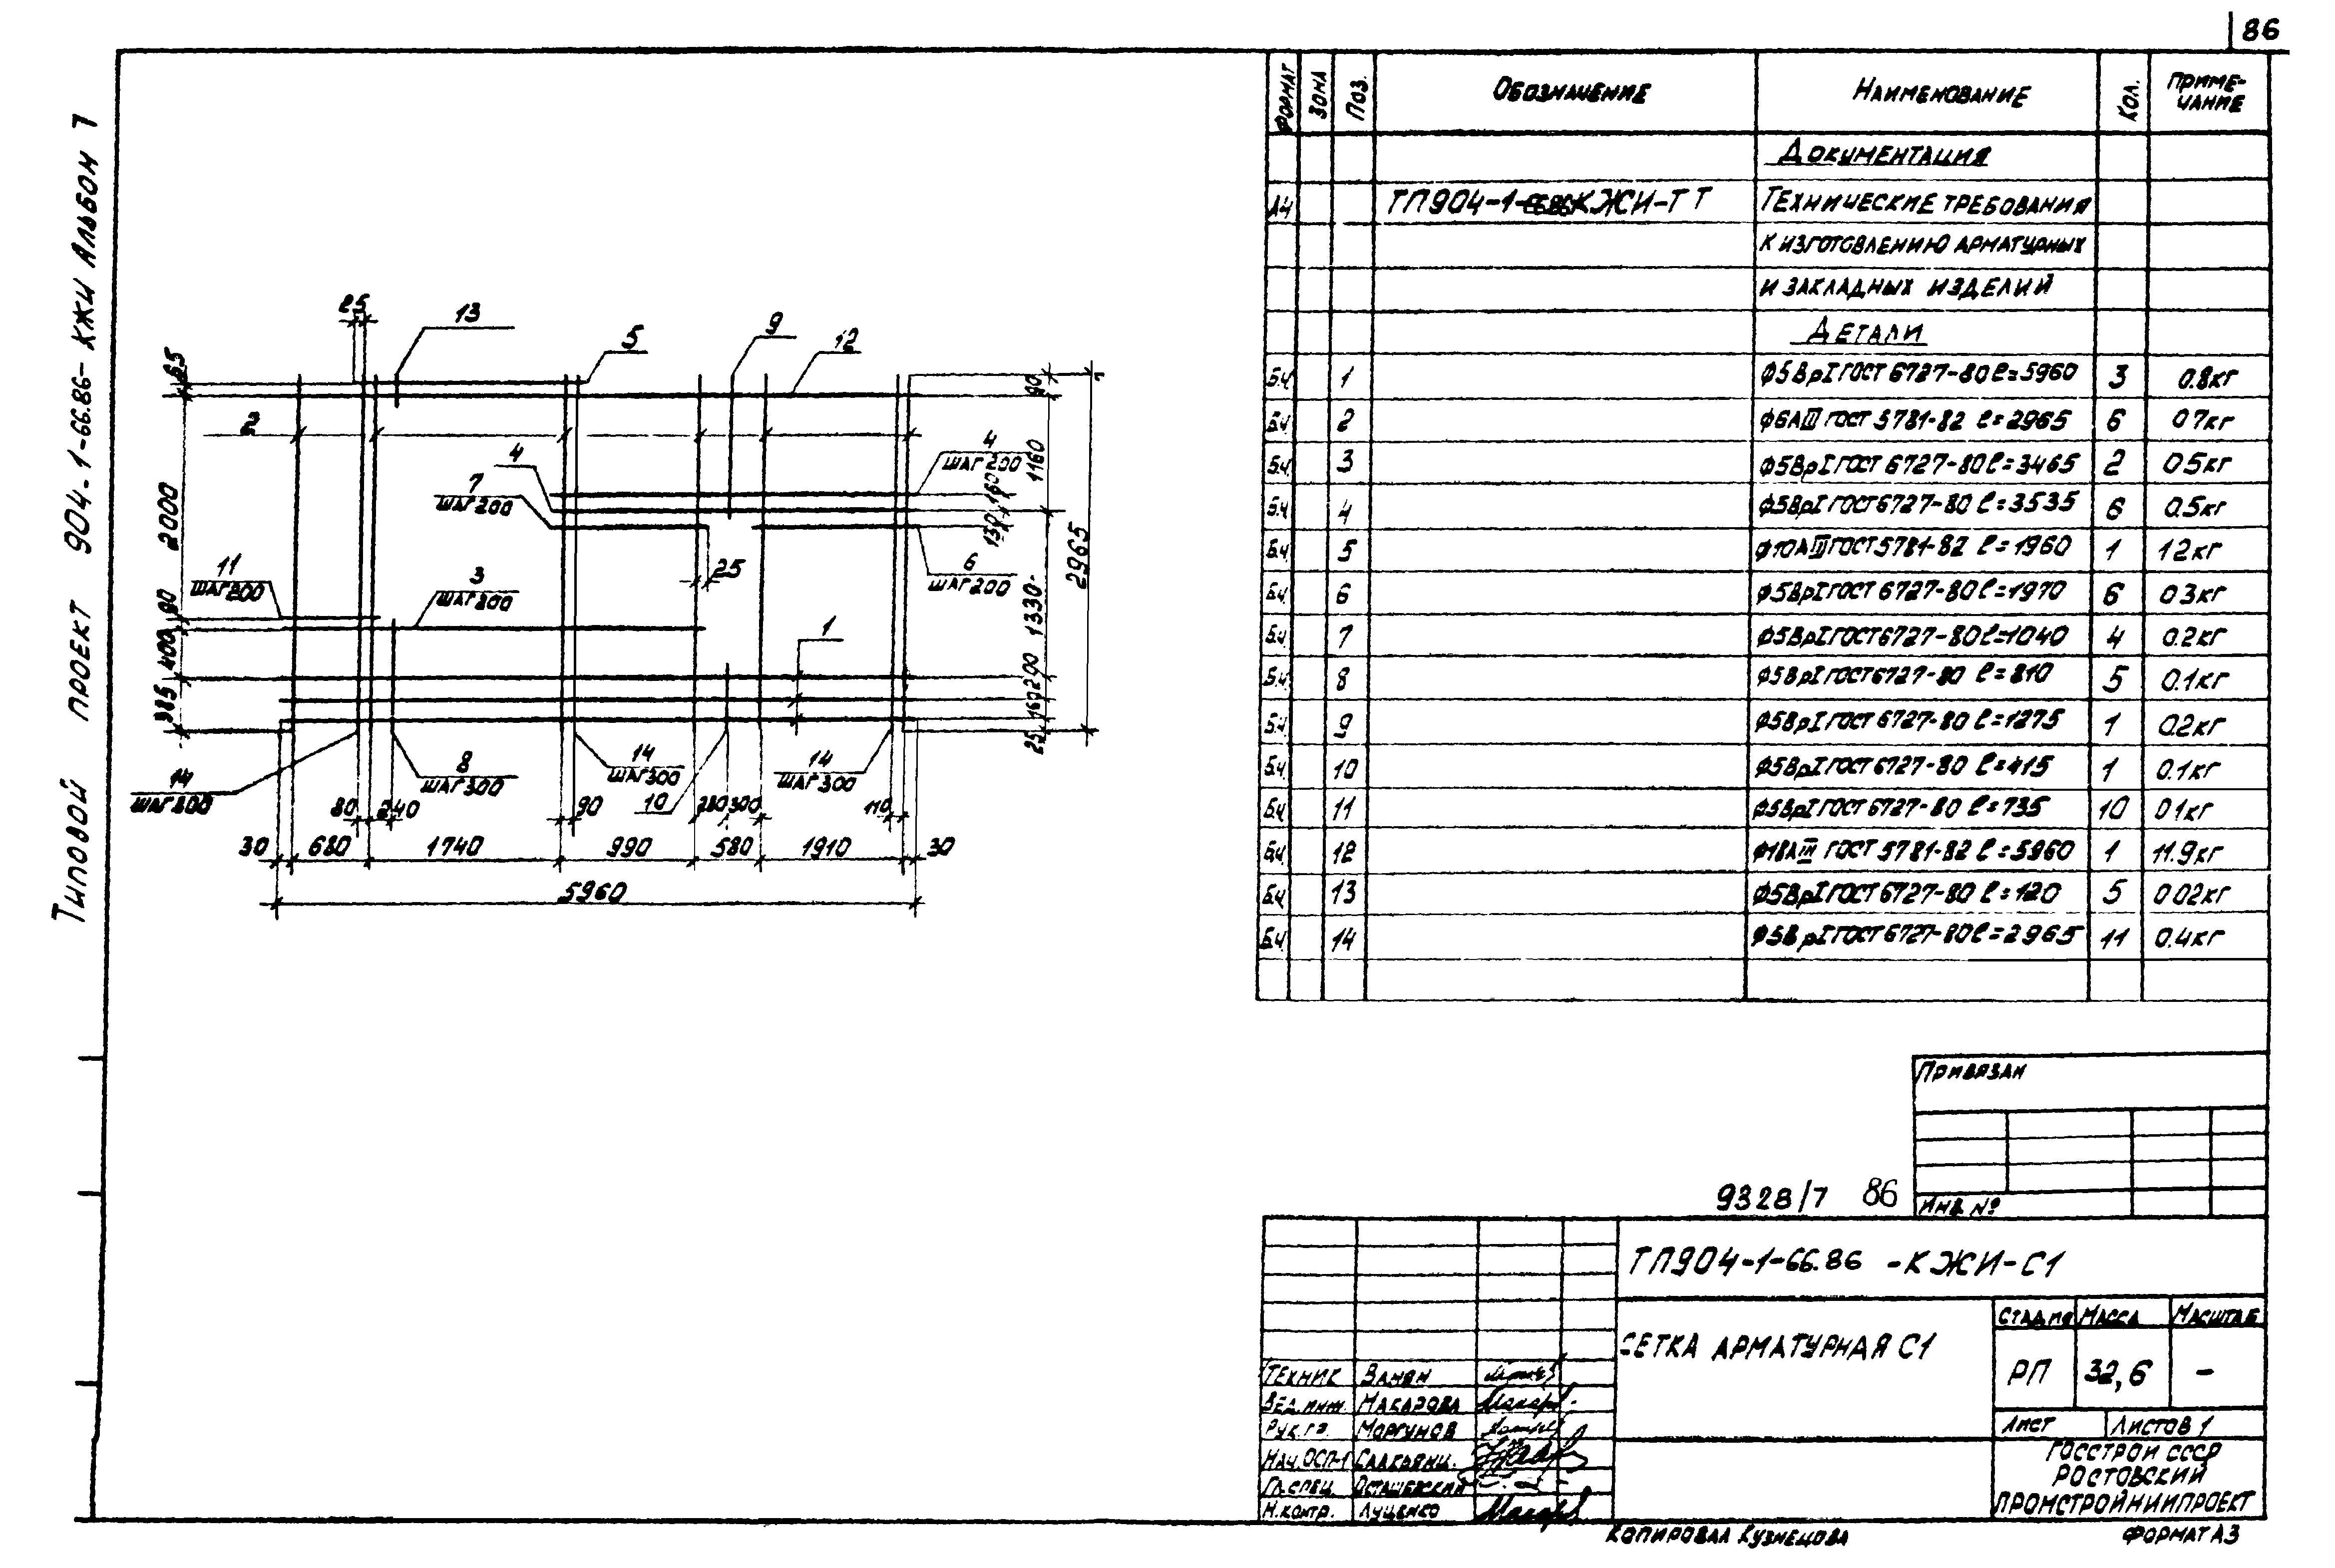 86
Типовой проект 904-1-66.86-КЖИ Альбом 7
Формат Зона Поз. Обозначение Наименование Кол. Примечание
Документация
А4 ТП904-1-66.86КЖИ-ТТ Технические требования
к изготовлению арматурных
и закладных изделий
Детали
Б.ч. 1 Ф5ВрI ГОСТ 6727-80 ℓ=5960 3 0.8кг
Б.ч. 2 Ф6АIII ГОСТ 5781-82 ℓ=2965 6 0.7кг
Б.ч. 3 Ф5ВрI ГОСТ 6727-80 ℓ=3465 2 0.5кг
Б.ч. 4 Ф5ВрI ГОСТ 6727-80 ℓ=3535 6 0.5кг
Б.ч. 5 Ф10АIII ГОСТ 5781-82 ℓ=1960 1 1.2кг
Б.ч. 6 Ф5ВрI ГОСТ 6727-80 ℓ=1970 6 0.3кг
Б.ч. 7 Ф5ВрI ГОСТ 6727-80 ℓ=1040 4 0.2кг
Б.ч. 8 Ф5ВрI ГОСТ 6727-80 ℓ=810 5 0.1кг
Б.ч. 9 Ф5ВрI ГОСТ 6727-80 ℓ=1275 1 0.2кг
Б.ч. 10 Ф5ВрI ГОСТ 6727-80 ℓ=415 1 0.1кг
Б.ч. 11 Ф5ВрI ГОСТ 6727-80 ℓ=735 10 0.1кг
Б.ч. 12 Ф18АIII ГОСТ 5781-82 ℓ=5960 1 11.9кг
Б.ч. 13 Ф5ВрI ГОСТ 6727-80 ℓ=120 5 0.02кг
Б.ч. 14 Ф5ВрI ГОСТ 6727-80 ℓ=2965 11 0.4кг
25 13 5 9 12
65 90
2
4 4 шаг 200
7 шаг 200
160 1160
2000
130
2965
11 шаг 200
3 шаг 200
25
6 шаг 200
90 1330
400
1
200
385
160
25
14 шаг 300
8 шаг 300
14 шаг 300
10
14 шаг 300
80 240 90 280 300 110
30 680 1740 990 580 1910 30
5960
Привязан
Инв. №
9328/7 86
ТП904-1-66.86 -КЖИ-С1
Сетка арматурная С1
Стадия Масса Масштаб
РП 32,6 -
Лист Листов 1
Госстрой СССР
Ростовский
Промстройниипроект
Техник Ванян
Вед. инж. Макарова
Рук. гр. Моргунов
Нач. ОСП-1
Гл. спец. Осташевский
Н. контр. Луценко
Копировал Кузнецова Формат А3